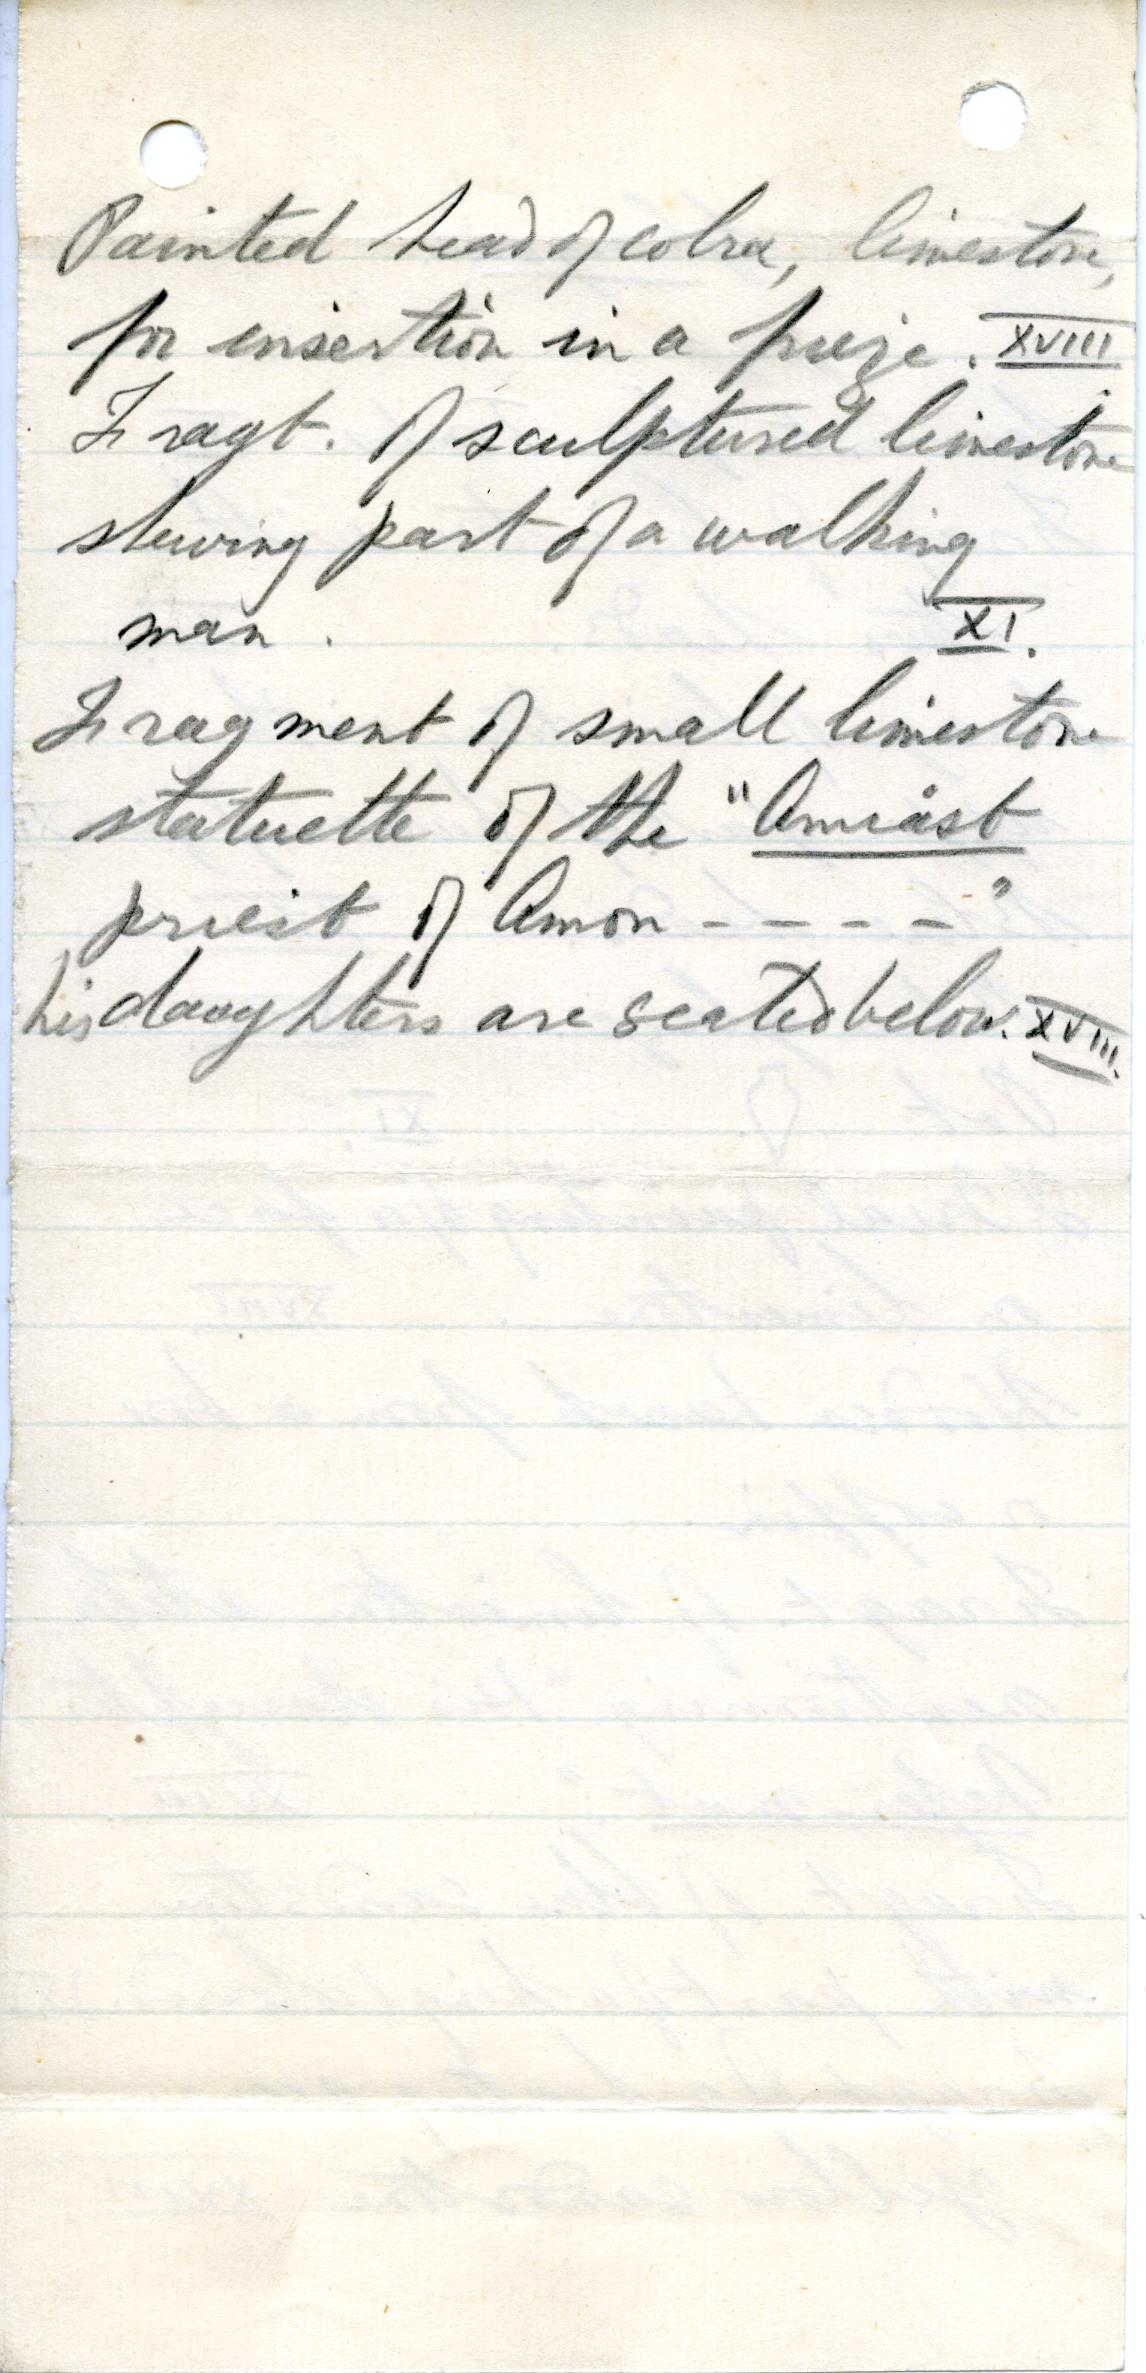 Painted head of cobra, limestone,
for insertion in a frieze. XVIII
Fragt. of sculptured limestone
shewing part of a walking
man. XI.
Fragment of small limestone
statuette of the "Amiast
priest of Amon - - - - "
his daughters are seated below. XVIII.